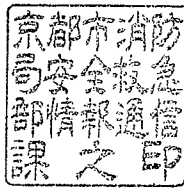 京都市消防
局安全救急
部情報通信
課之印